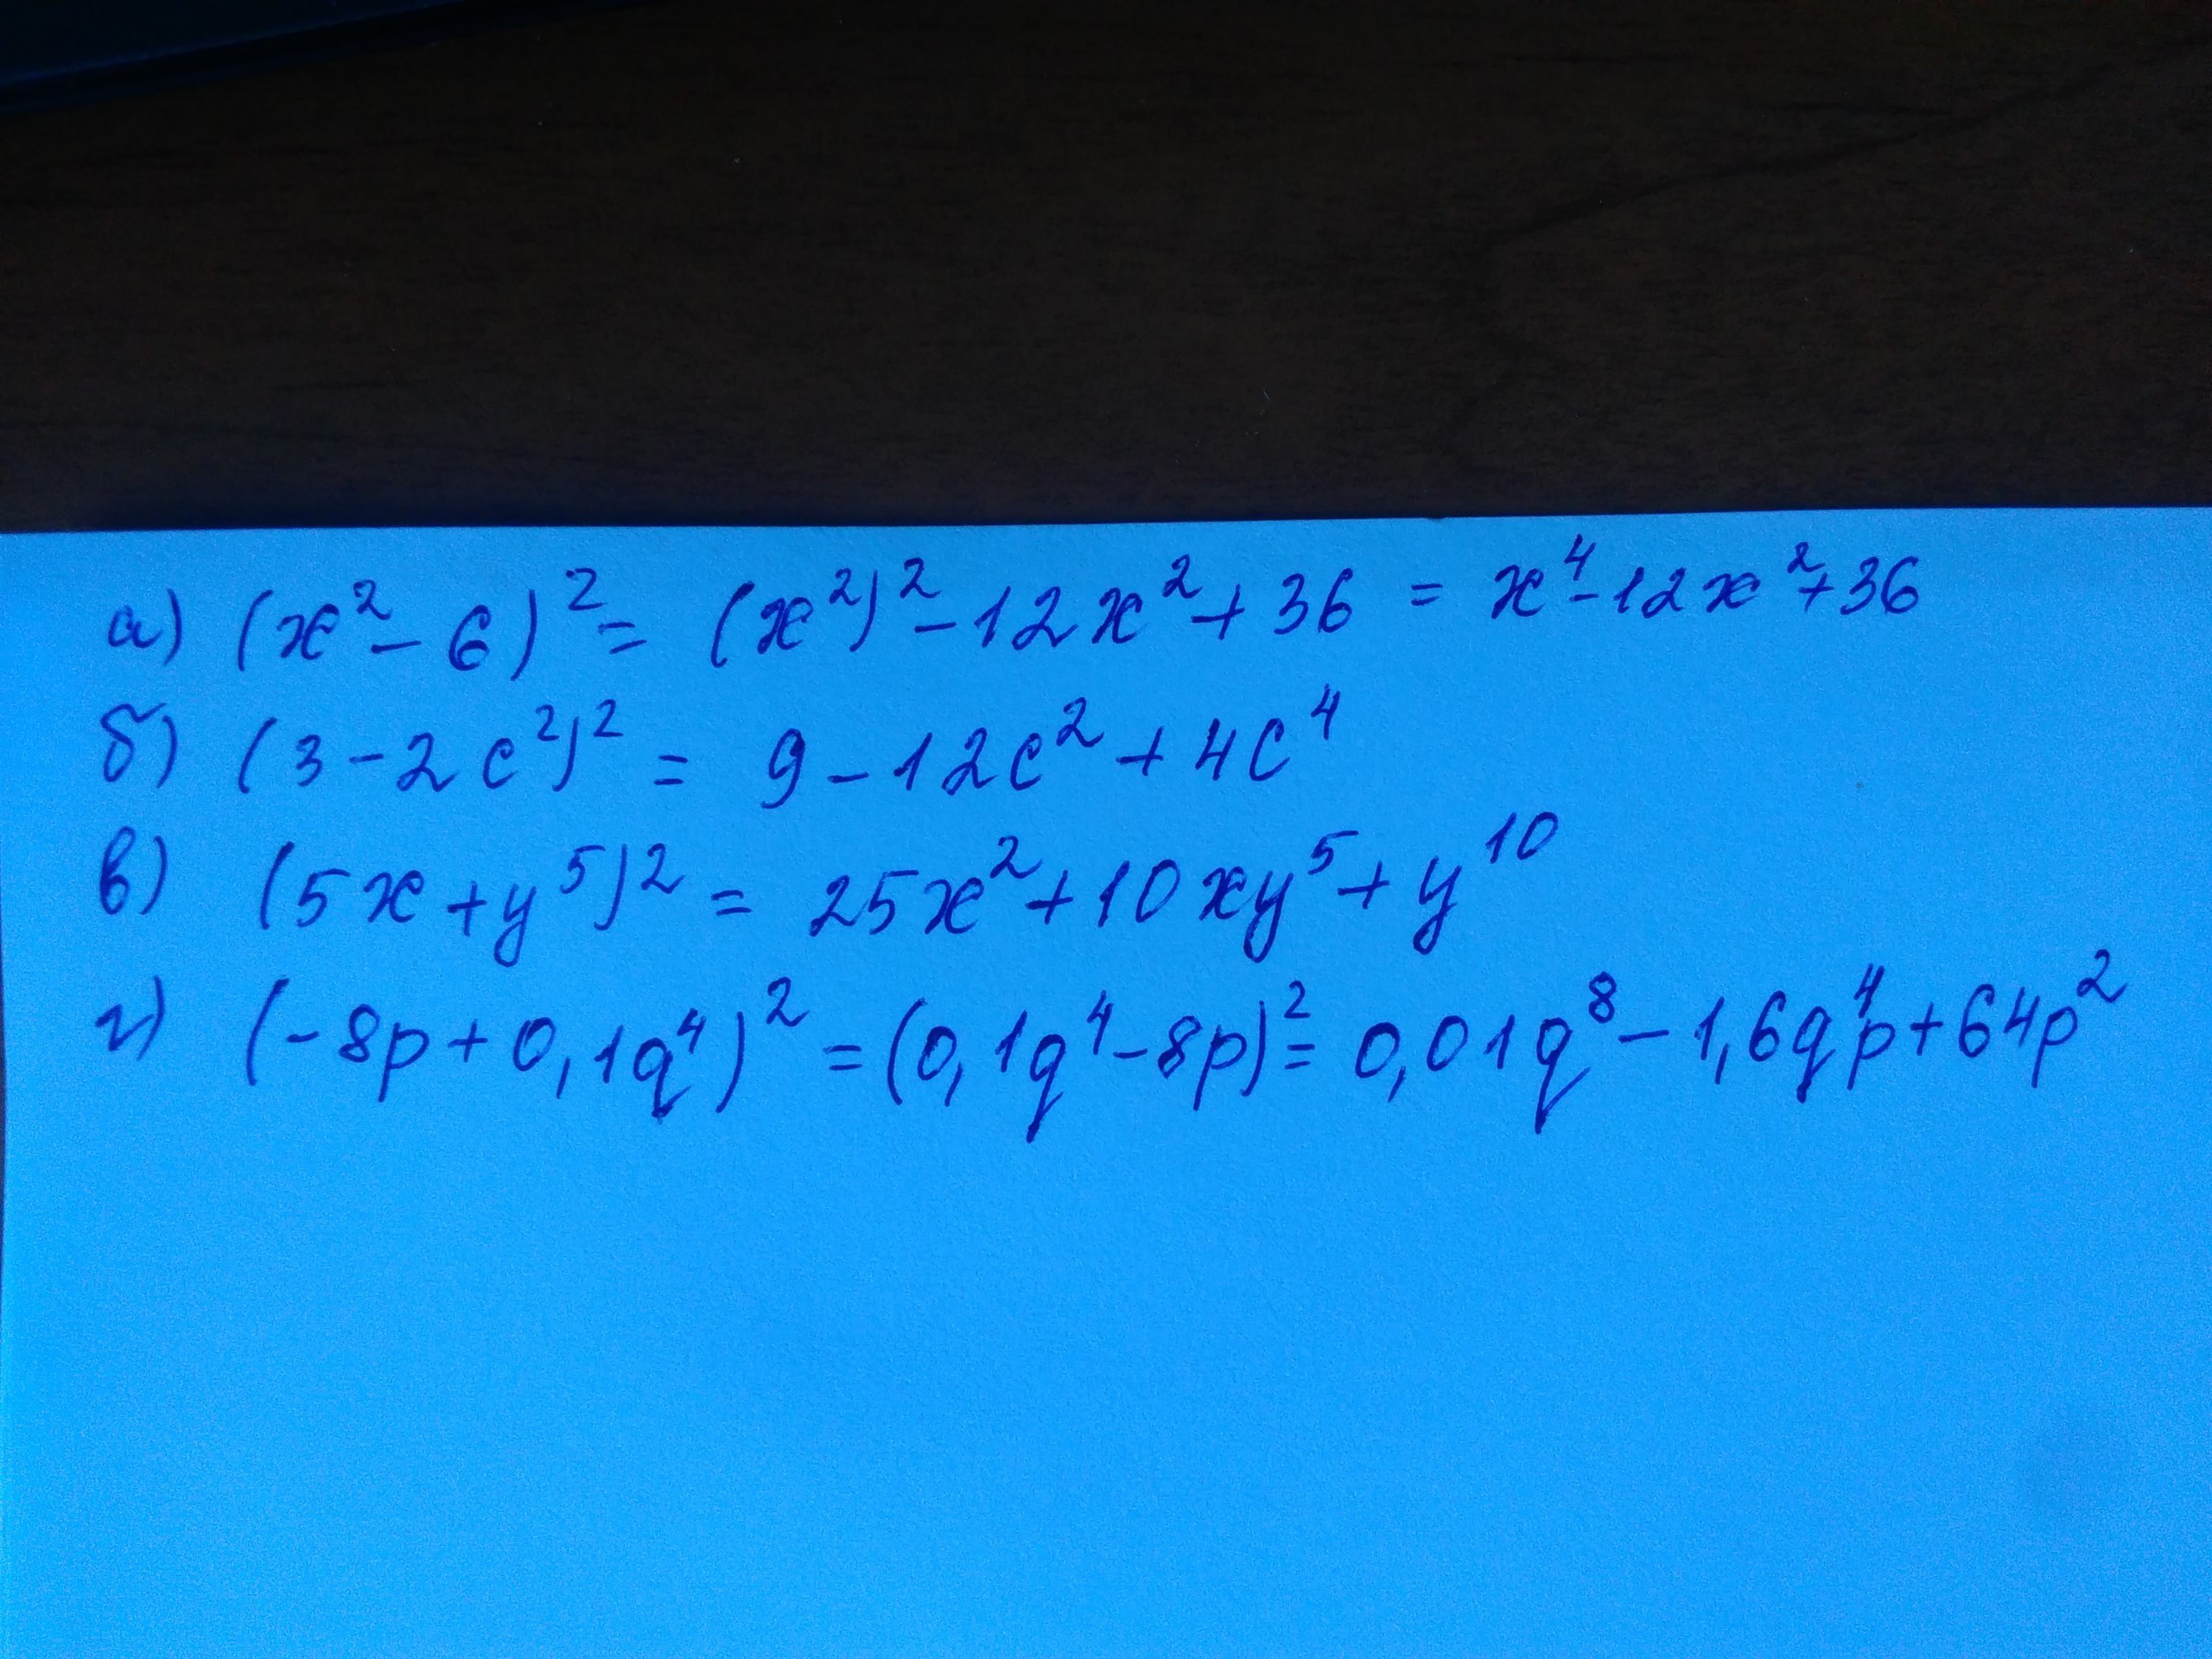 а) (x²-6)² = (x²)²-12x²+36 = x⁴-12x²+36
б) (3-2c²)² = 9-12c²+4c⁴
в) (5x+y⁵)² = 25x²+10xy⁵+y¹⁰
г) (-8p+0,1q⁴)² = (0,1q⁴-8p)² = 0,01q⁸-1,6q⁴p+64p²